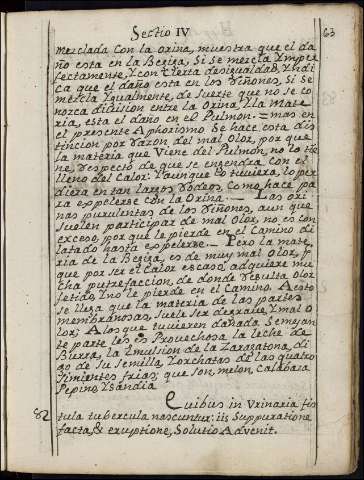 Sectio IV
63
mezclada con la orina, muestra que el da
ño esta en la Bexiga, Si se mezcla Ymper
fectamente, Y con cierta desigualdad, Yndi
ca que el daño esta en los Riñones, Si se
mezcla Ygualmente, de suerte que no se co
nozca division entre la Orina, Y la Mate
ria, esta el daño en el Pulmon. = mas en
el presente Aphorismo Se hace esta dis
tincion por razon del mal olor, por que
la materia que Viene del Pulmon, no lo tie
ne, respecto da que se engendra con el
lleno del Calor: Y aunque lo tuviera, lo per
diera en tan largos rodeos, como hace pa
ra expelerse con la Orina. _ Las ori
nas purulentas de los Riñones, aun que
suelen participar de mal Olor, no es con
exceso, por que le pierde en el Camino di
latado hasta expelerse. _ Pero la mate
ria de la Bexiga, es de muy mal olor, p.r
que por ser el Calor escaso, adquiere mu
cha putrefaccion, de donde resulta olor
fetido, Y no le pierde en el Camino. A esto
se llega que la materia de las partes
membranosas, suele ser de grave, Y mal O
lor; A los que tuvieren dañada Semejan
te parte les es Provechosa la leche de
Burra, la Emulsion de la Zaragatona, di
go de su semilla, Y orchatas de las quatro
simientes frias; que son, melon, calabaza
Pepino, Y Sandia
Quibus in Urinaria fis
82 tula tubercula nascuntur: iis Suppuratione
facta, & eruptione, Solutio Advenit.